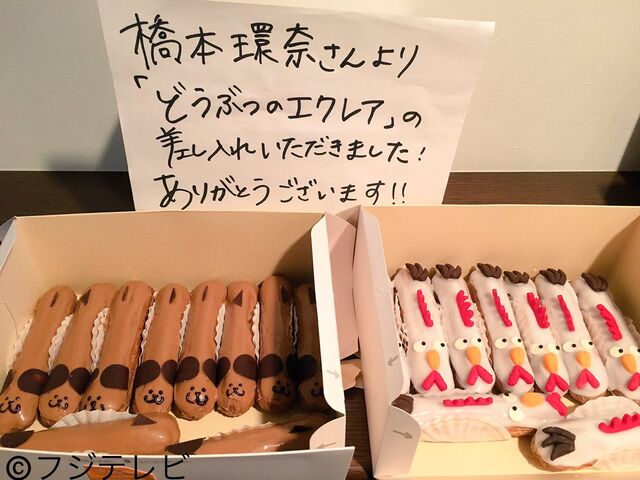 橋本環奈さんより
「どうぶつのエクレア」の
差し入れいただきました!
ありがとうございます!!
©フジテレビ